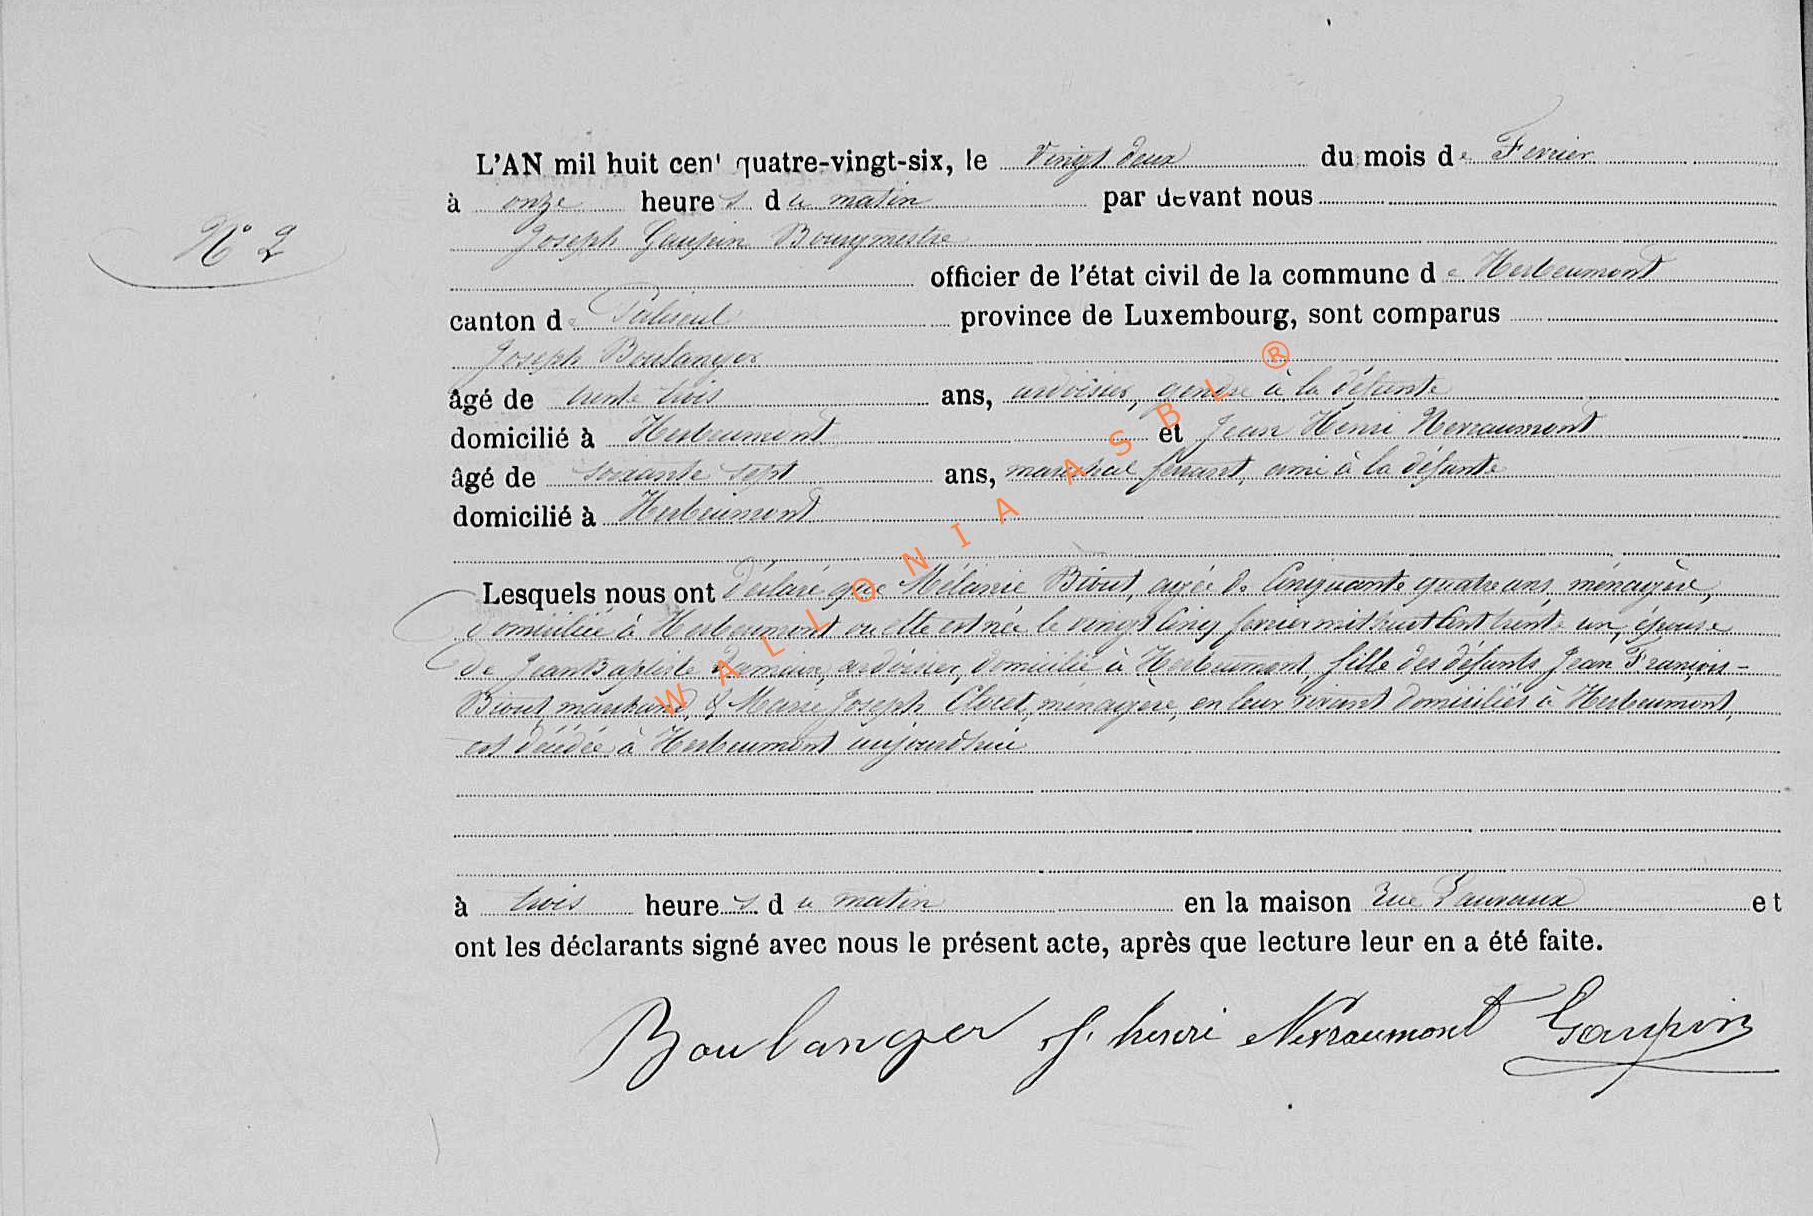 L'AN mil huit cen' quatre-vingt-six, le Vingt deux du mois de Fevrier
à onze heures du matin par devant nous
N° 2
Joseph Gaupin Bourgmestre
officier de l'état civil de la commune de Herbeumont
canton de Paliseul province de Luxembourg, sont comparus
Joseph Boulanger
âgé de trente trois ans, ardoisier, gendre à la défunte
domicilié à Herbeumont et Jean Henri Nerraumont
âgé de soixante sept ans, maréchal ferrant, ami à la défunte
domicilié à Herbeumont
Lesquels nous ont déclaré que Mélanie Biout, agée de Cinquante quatre ans, ménagère,
domiciliée à Herbeumont ou elle est née le vingt cinq fevrier mil huit cent trente un, épouse
de Jean Baptiste ardoisier, domicilié à Herbeumont, fille des défunts Jean François-
Biout, marchand, & Marie Joseph Clocet, ménagère, en leur vivant domiciliés à Herbeumont,
est décédée à Herbeumont aujourdhui
à trois heures du matin en la maison Rue et
ont les déclarants signé avec nous le présent acte, après que lecture leur en a été faite.
Boulanger J. henri Nerraumont Gaupin
WALLONIA ASBL ®